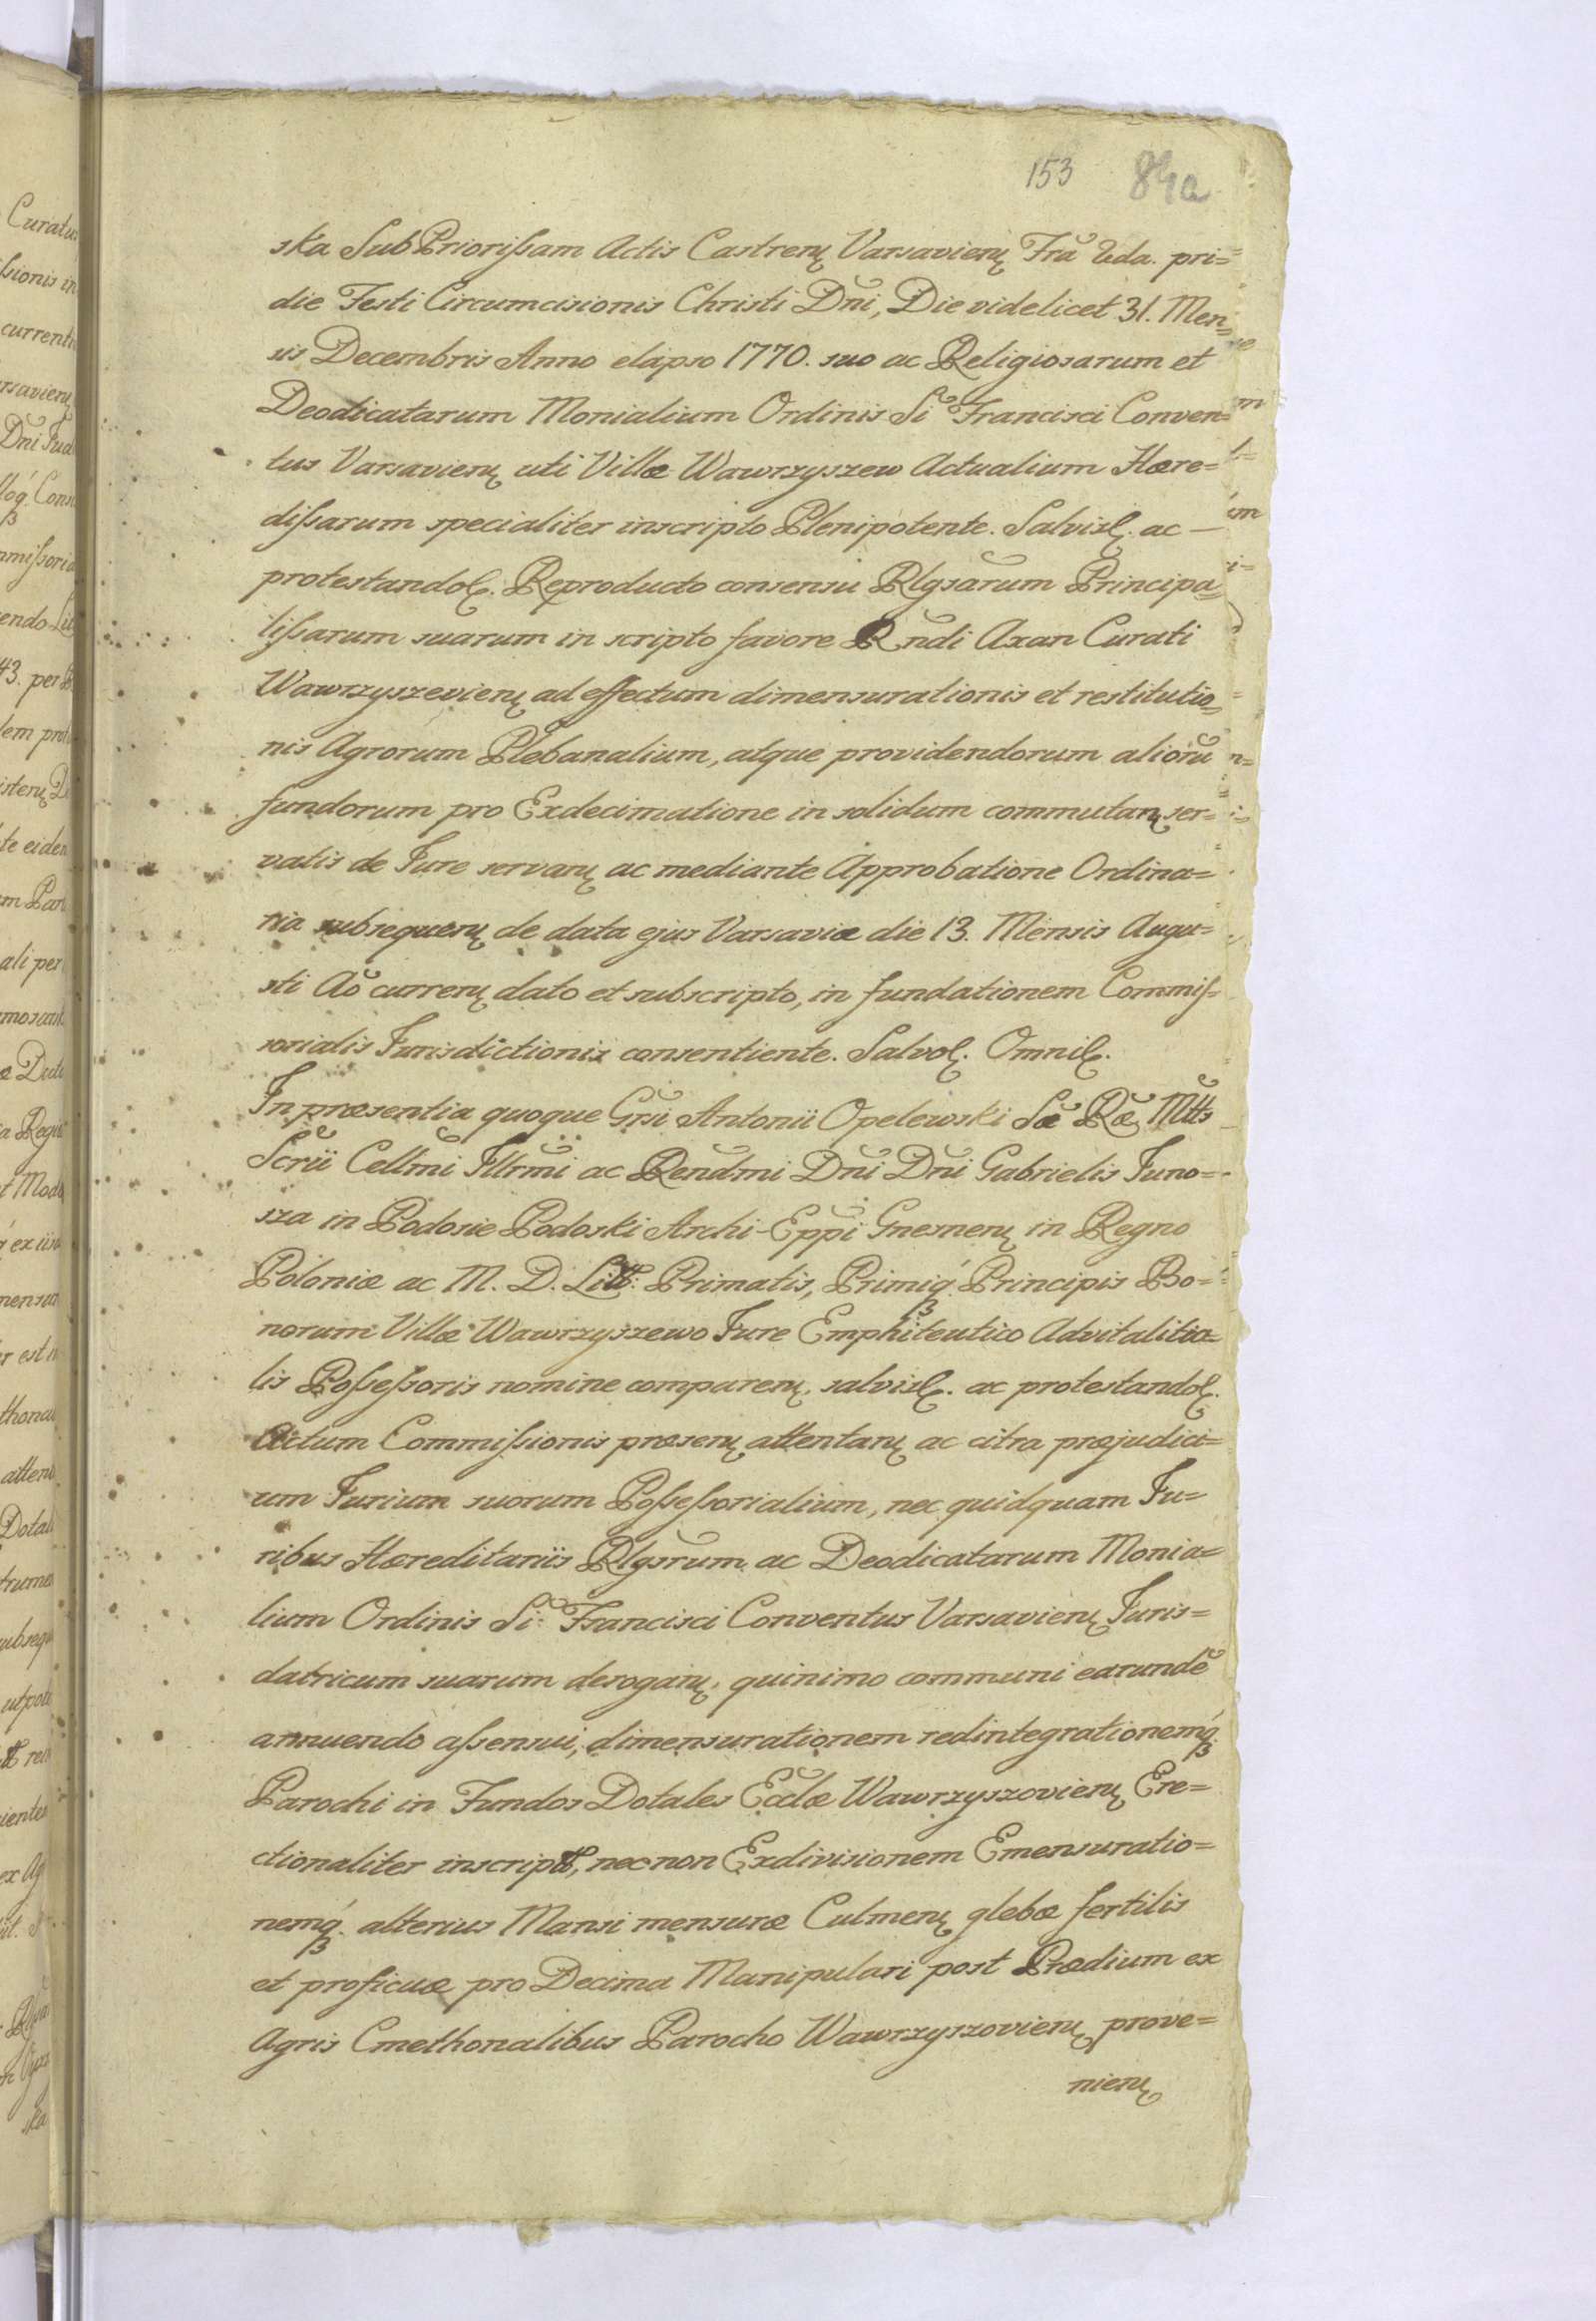 153 84a
ska SubPriorißam Actis Castren̄ Varsavien̄ Fra 2da. pri=
die Festi Circumcisionis Christi Dn̄i, Die videlicet 31. Men=
sis Decembris Anno elapso 1770. suo ac Religiosarum et
Deodicatarum Monialium Ordinis Si Francisci Conven=
tus Varsavien̄ uti Villæ Wawrzyszew Actualium Hære=
dißarum specialiter inscripto Plenipotente. Salvisq. ac —
protestandoq. Reproducto consensu Rlgsarum Principa=
lißarum suarum in scripto favore Rndi Axan Curati
Wawrzyszevien̄ ad effectum dimensurationis et restitutio=
nis Agrorum Plebanalium, atque providendorum aliorū
fundorum pro Exdecimatione in solidum commutan̄ ser=
vatis de Jure servan̄ ac mediante Approbatione Ordina=
ria subsequen̄ de data ejus Varsaviæ die 13. Mensis Augu=
sti Aō curren̄ dato et subscripto, in fundationem Commiß=
sorialis Jurisdictionis consentiente. Salvoq. Omniq.
In præsentia quoque Grsi Antonii Opelewski Sæ Ræ Mtts
Scrii Cellmi Illrmi ac Rendmi Dn̄i Dn̄i Gabrielis Juno=
sza in Podosie Podoski Archi-Eppi Gnesnen̄ in Regno
Poloniæ ac M. D. Litt: Primatis, Primiq́. Principis Bo=
norum Villæ Wawrzyszewo Jure Emphiteutico Advitalitia=
lis Poßeßoris nomine comparen̄. salvisq. ac protestandoq.
Actum Commißionis præsen̄ attentan̄ ac citra præjudici=
um Jurium suorum Poßeßorialium, nec quidquam Ju=
ribus Hæreditariis Rlgsrum ac Deodicatarum Monia=
lium Ordinis Si Francisci Conventus Varsavien̄ Juris=
datricum suarum derogan̄, quinimo communi earundē
annuendo aßensui, dimensurationem redintegrationemq́.
Parochi in Fundos Dotales Ecclæ Wawrzyszovien̄ Ere=
ctionaliter inscriptt, nec non Exdivisionem Emensuratio=
nemq́. alterius Mansi mensuræ Culmen̄ glebæ fertilis
et proficuæ pro Decima Manipulari post Prædium ex
Agris Cmethonalibus Parocho Wawrzyszovien̄ prove=
nien̄